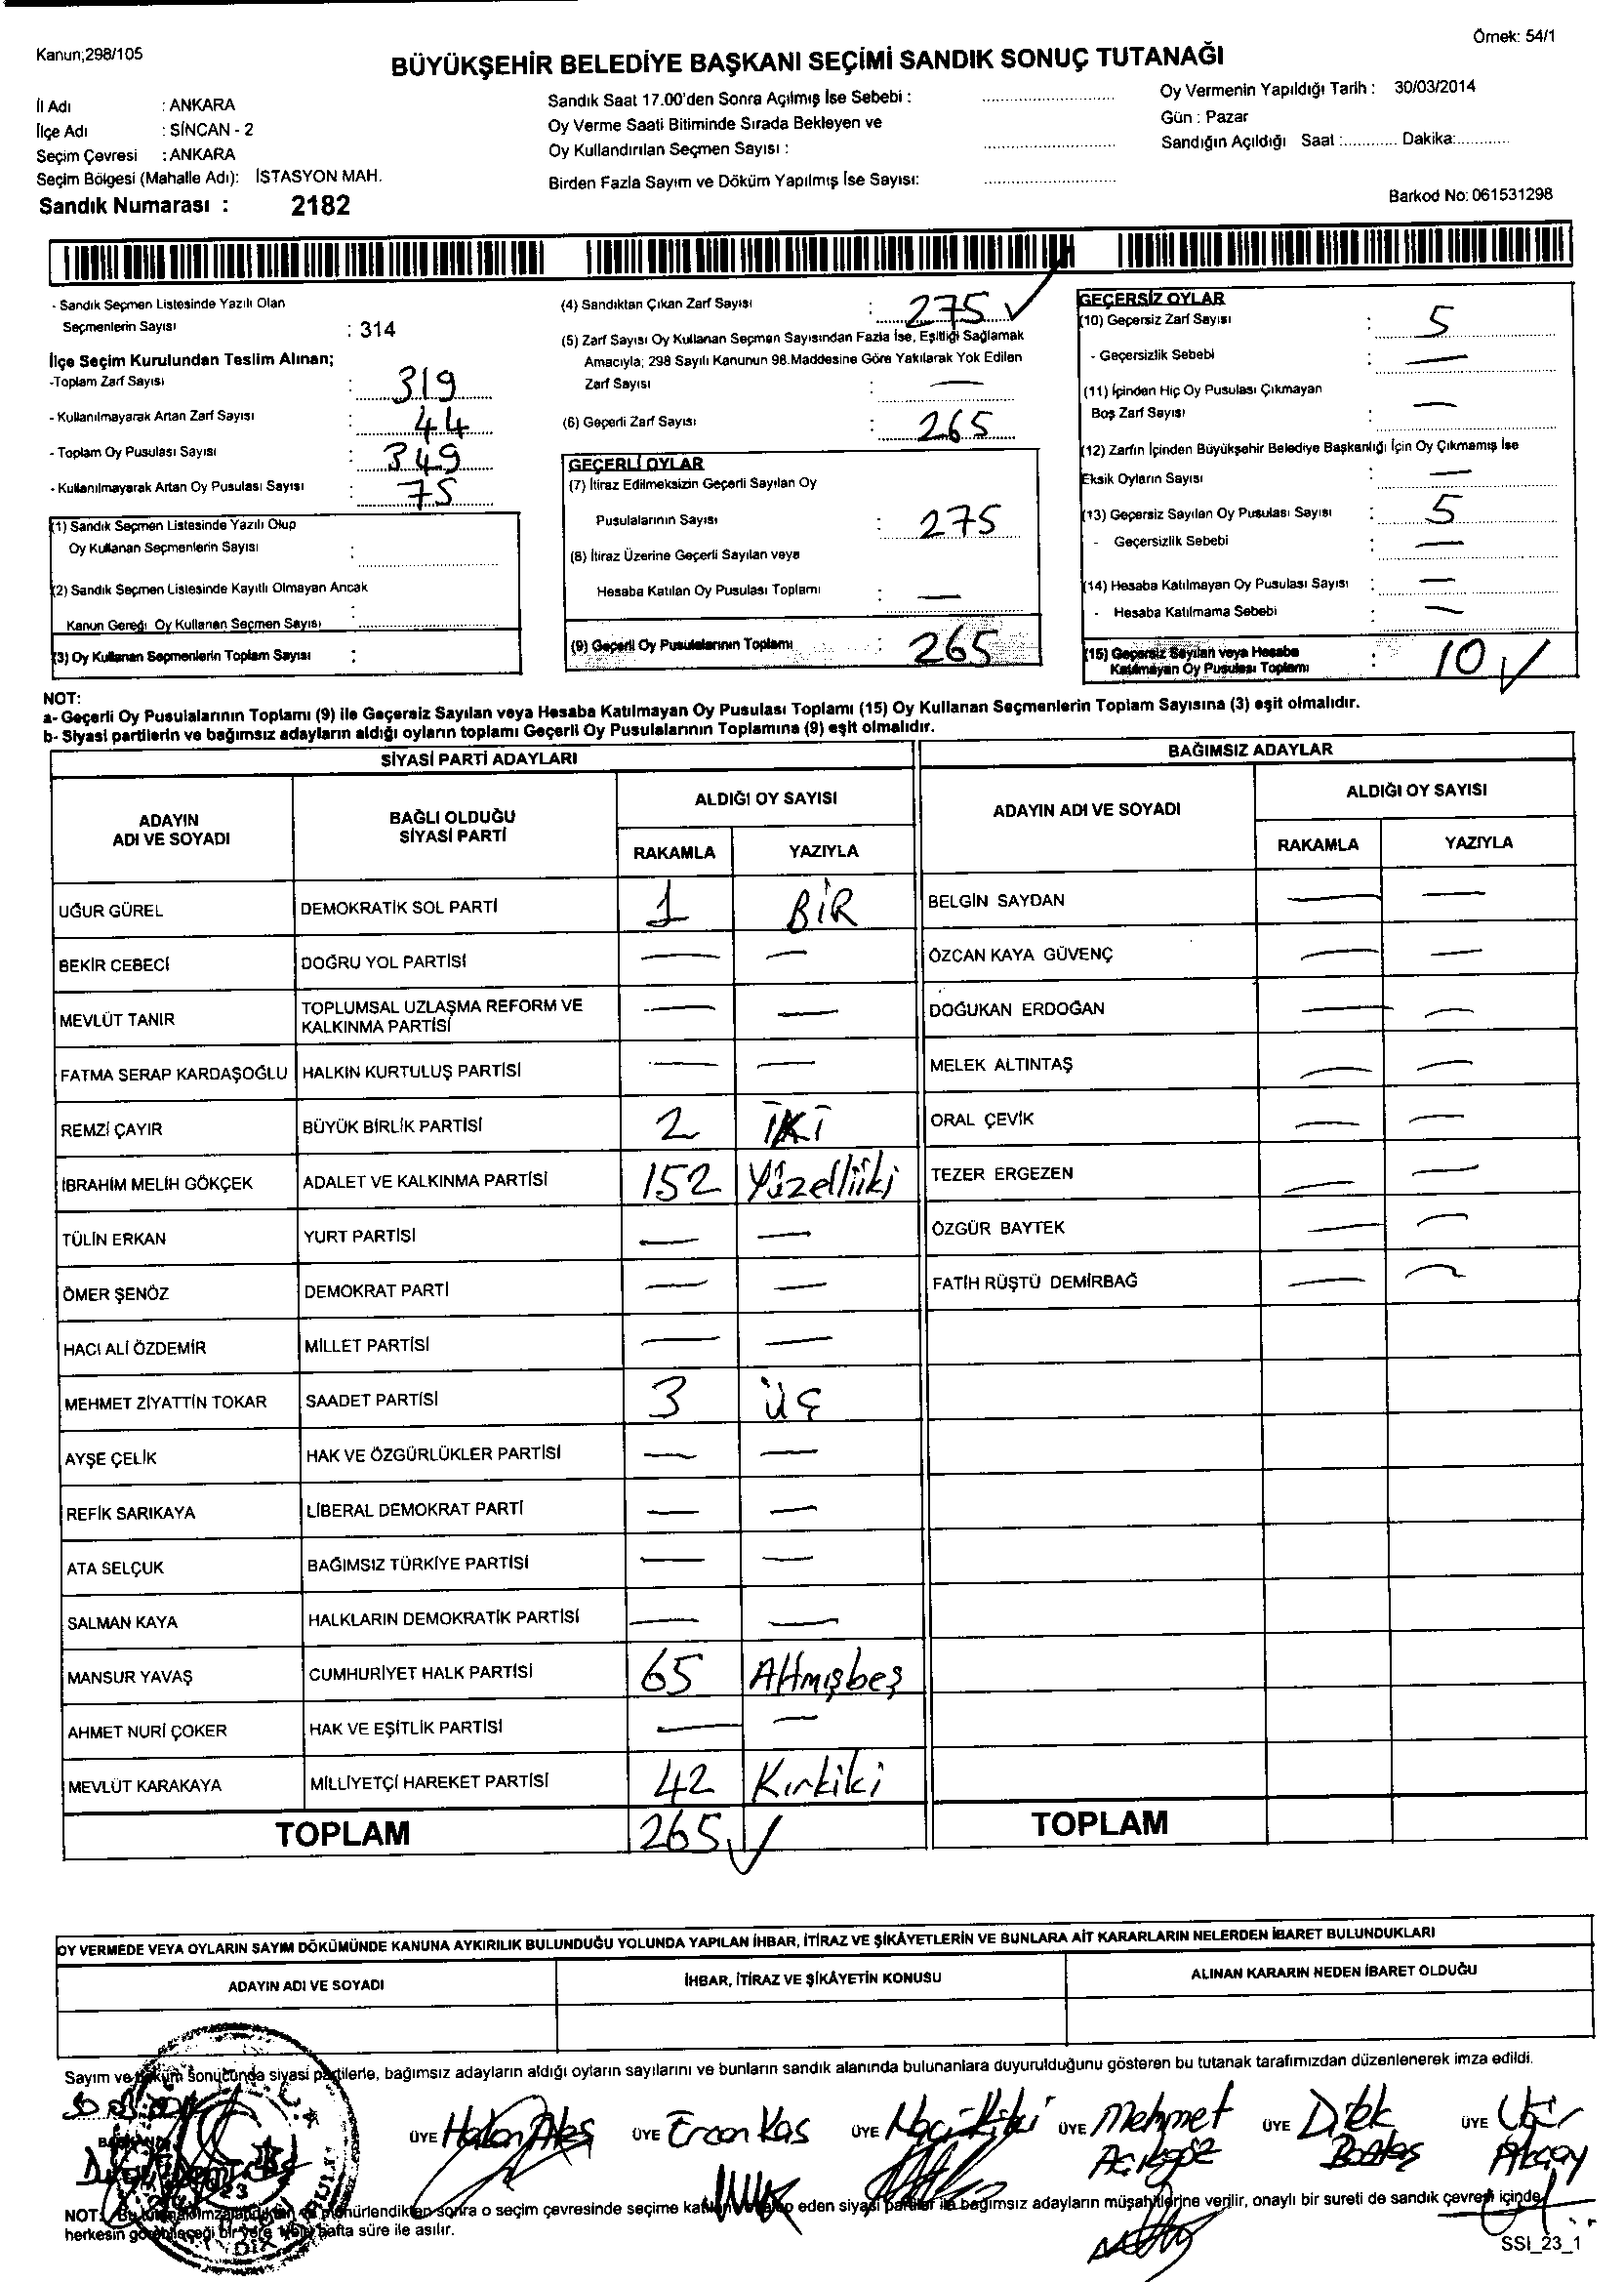 Kanun;298/105
Örnek: 54/1
BÜYÜKŞEHİR BELEDİYE BAŞKANI SEÇİMİ SANDIK SONUÇ TUTANAĞI
İl Adı : ANKARA
İlçe Adı : SİNCAN - 2
Seçim Çevresi : ANKARA
Seçim Bölgesi (Mahalle Adı): İSTASYON MAH.
Sandık Numarası : 2182
Sandık Saat 17.00'den Sonra Açılmış İse Sebebi :
Oy Verme Saati Bitiminde Sırada Bekleyen ve
Oy Kullandırılan Seçmen Sayısı :
Birden Fazla Sayım ve Döküm Yapılmış İse Sayısı:
Oy Vermenin Yapıldığı Tarih : 30/03/2014
Gün : Pazar
Sandığın Açıldığı Saat :............ Dakika:............
Barkod No: 061531298
- Sandık Seçmen Listesinde Yazılı Olan
Seçmenlerin Sayısı : 314
İlçe Seçim Kurulundan Teslim Alınan;
-Toplam Zarf Sayısı : 319
- Kullanılmayarak Artan Zarf Sayısı : 44
- Toplam Oy Pusulası Sayısı : 349
- Kullanılmayarak Artan Oy Pusulası Sayısı : 75
(1) Sandık Seçmen Listesinde Yazılı Olup
Oy Kullanan Seçmenlerin Sayısı :
(2) Sandık Seçmen Listesinde Kayıtlı Olmayan Ancak
Kanun Gereği Oy Kullanan Seçmen Sayısı :
(3) Oy Kullanan Seçmenlerin Toplam Sayısı :
(4) Sandıktan Çıkan Zarf Sayısı : 275 ✓
(5) Zarf Sayısı Oy Kullanan Seçmen Sayısından Fazla İse, Eşitliği Sağlamak
Amacıyla; 298 Sayılı Kanunun 98.Maddesine Göre Yakılarak Yok Edilen
Zarf Sayısı : —
(6) Geçerli Zarf Sayısı : 265
GEÇERLİ OYLAR
(7) İtiraz Edilmeksizin Geçerli Sayılan Oy
Pusulalarının Sayısı : 275
(8) İtiraz Üzerine Geçerli Sayılan veya
Hesaba Katılan Oy Pusulası Toplamı : —
(9) Geçerli Oy Pusulalarının Toplamı : 265
GEÇERSİZ OYLAR
(10) Geçersiz Zarf Sayısı : 5
- Geçersizlik Sebebi : —
(11) İçinden Hiç Oy Pusulası Çıkmayan
Boş Zarf Sayısı : —
(12) Zarfın İçinden Büyükşehir Belediye Başkanlığı İçin Oy Çıkmamış İse
Eksik Oyların Sayısı : —
(13) Geçersiz Sayılan Oy Pusulası Sayısı : 5
- Geçersizlik Sebebi : —
(14) Hesaba Katılmayan Oy Pusulası Sayısı : —
- Hesaba Katılmama Sebebi : —
(15) Geçersiz Sayılan veya Hesaba
Katılmayan Oy Pusulası Toplamı : 10 ✓
NOT:
a- Geçerli Oy Pusulalarının Toplamı (9) ile Geçersiz Sayılan veya Hesaba Katılmayan Oy Pusulası Toplamı (15) Oy Kullanan Seçmenlerin Toplam Sayısına (3) eşit olmalıdır.
b- Siyasi partilerin ve bağımsız adayların aldığı oyların toplamı Geçerli Oy Pusulalarının Toplamına (9) eşit olmalıdır.
SİYASİ PARTİ ADAYLARI
ADAYIN ADI VE SOYADI
BAĞLI OLDUĞU SİYASİ PARTİ
ALDIĞI OY SAYISI
RAKAMLA YAZIYLA
UĞUR GÜREL DEMOKRATİK SOL PARTİ 1 BİR
BEKİR CEBECİ DOĞRU YOL PARTİSİ — —
MEVLÜT TANIR TOPLUMSAL UZLAŞMA REFORM VE KALKINMA PARTİSİ — —
FATMA SERAP KARDAŞOĞLU HALKIN KURTULUŞ PARTİSİ — —
REMZİ ÇAYIR BÜYÜK BİRLİK PARTİSİ 2 İKİ
İBRAHİM MELİH GÖKÇEK ADALET VE KALKINMA PARTİSİ 152 Yüzelliiki
TÜLİN ERKAN YURT PARTİSİ — —
ÖMER ŞENÖZ DEMOKRAT PARTİ — —
HACI ALİ ÖZDEMİR MİLLET PARTİSİ — —
MEHMET ZİYATTİN TOKAR SAADET PARTİSİ 3 üÇ
AYŞE ÇELİK HAK VE ÖZGÜRLÜKLER PARTİSİ — —
REFİK SARIKAYA LİBERAL DEMOKRAT PARTİ — —
ATA SELÇUK BAĞIMSIZ TÜRKİYE PARTİSİ — —
SALMAN KAYA HALKLARIN DEMOKRATİK PARTİSİ — —
MANSUR YAVAŞ CUMHURİYET HALK PARTİSİ 65 Altmışbeş
AHMET NURİ ÇOKER HAK VE EŞİTLİK PARTİSİ — —
MEVLÜT KARAKAYA MİLLİYETÇİ HAREKET PARTİSİ 42 Kırkiki
TOPLAM 265 ✓
BAĞIMSIZ ADAYLAR
ADAYIN ADI VE SOYADI
ALDIĞI OY SAYISI
RAKAMLA YAZIYLA
BELGİN SAYDAN — —
ÖZCAN KAYA GÜVENÇ — —
DOĞUKAN ERDOĞAN — —
MELEK ALTINTAŞ — —
ORAL ÇEVİK — —
TEZER ERGEZEN — —
ÖZGÜR BAYTEK — —
FATİH RÜŞTÜ DEMİRBAĞ — —
TOPLAM
OY VERMEDE VEYA OYLARIN SAYIM DÖKÜMÜNDE KANUNA AYKIRILIK BULUNDUĞU YOLUNDA YAPILAN İHBAR, İTİRAZ VE ŞİKÂYETLERİN VE BUNLARA AİT KARARLARIN NELERDEN İBARET BULUNDUKLARI
ADAYIN ADI VE SOYADI İHBAR, İTİRAZ VE ŞİKÂYETİN KONUSU ALINAN KARARIN NEDEN İBARET OLDUĞU
Sayım ve döküm sonucunda siyasi partilerle, bağımsız adayların aldığı oyların sayılarını ve bunların sandık alanında bulunanlara duyurulduğunu gösteren bu tutanak tarafımızdan düzenlenerek imza edildi.
ÜYE Hakan Ateş ÜYE Ercan Kas ÜYE ÜYE Mehmet Açıkgöz ÜYE Dilek ÜYE
NOT: Bu tutanak imzalandıktan ve mühürlendikten sonra o seçim çevresinde seçime katılan ve talep eden siyasi partiler ile bağımsız adayların müşahitlerine verilir, onaylı bir sureti de sandık çevresi içinde
herkesin görebileceği bir yere 1(bir) hafta süre ile asılır.
SSI_23_1